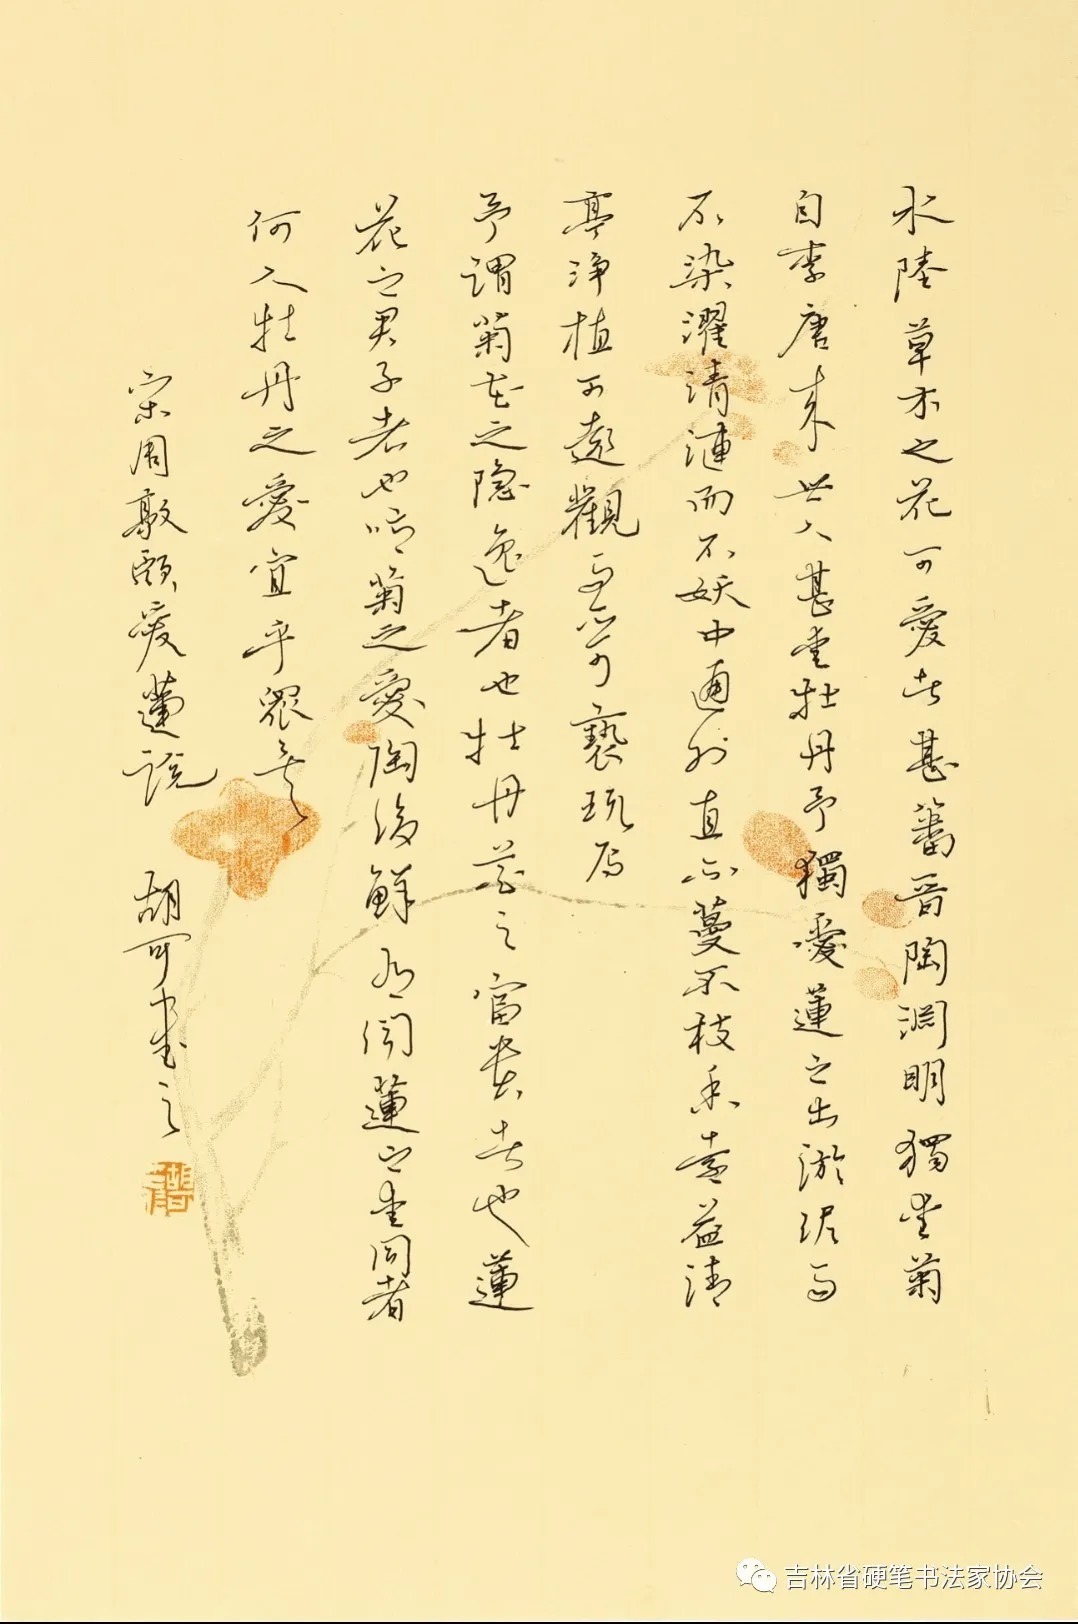 水陸草木之花可愛者甚蕃晉陶淵明獨愛菊
自李唐來世人甚愛牡丹予獨愛蓮之出淤泥而
不染濯清漣而不妖中通外直不蔓不枝香遠益清
亭淨植可遠觀而不可褻玩焉
予謂菊花之隐逸者也牡丹花之富貴者也蓮
花之君子者也噫菊之愛陶後鮮有聞蓮之愛同者
何人牡丹之愛宜乎眾矣
宋周敦頤爱蓮説 胡可書之
吉林省硬笔书法家协会